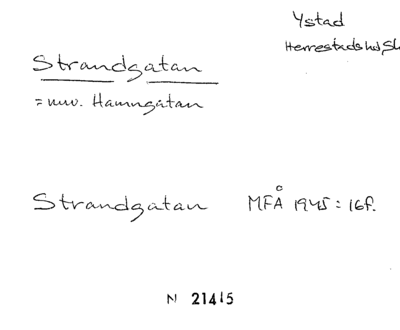 Ystad
Herrestads hd, Sk
Strandgatan
= nuv. Hamngatan
Strandgatan MFÅ 1945: 16f.
N 21415